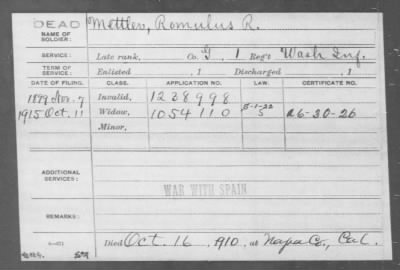 DEAD
Mettler, Romulus R.
NAME OF SOLDIER:
SERVICE: Late rank, Co. I, 1 Reg't Wash Inf.
TERM OF SERVICE: Enlisted , 1 Discharged , 1
DATE OF FILING. CLASS. APPLICATION NO. LAW. CERTIFICATE NO.
1899 Nov. 7 Invalid, 1228998
1915 Oct. 11 Widow, 1054110 5-1-22 S A6-30-26
Minor,
ADDITIONAL SERVICES:
WAR WITH SPAIN
REMARKS:
Died Oct. 16, 1910, at Napa Co., Cal.